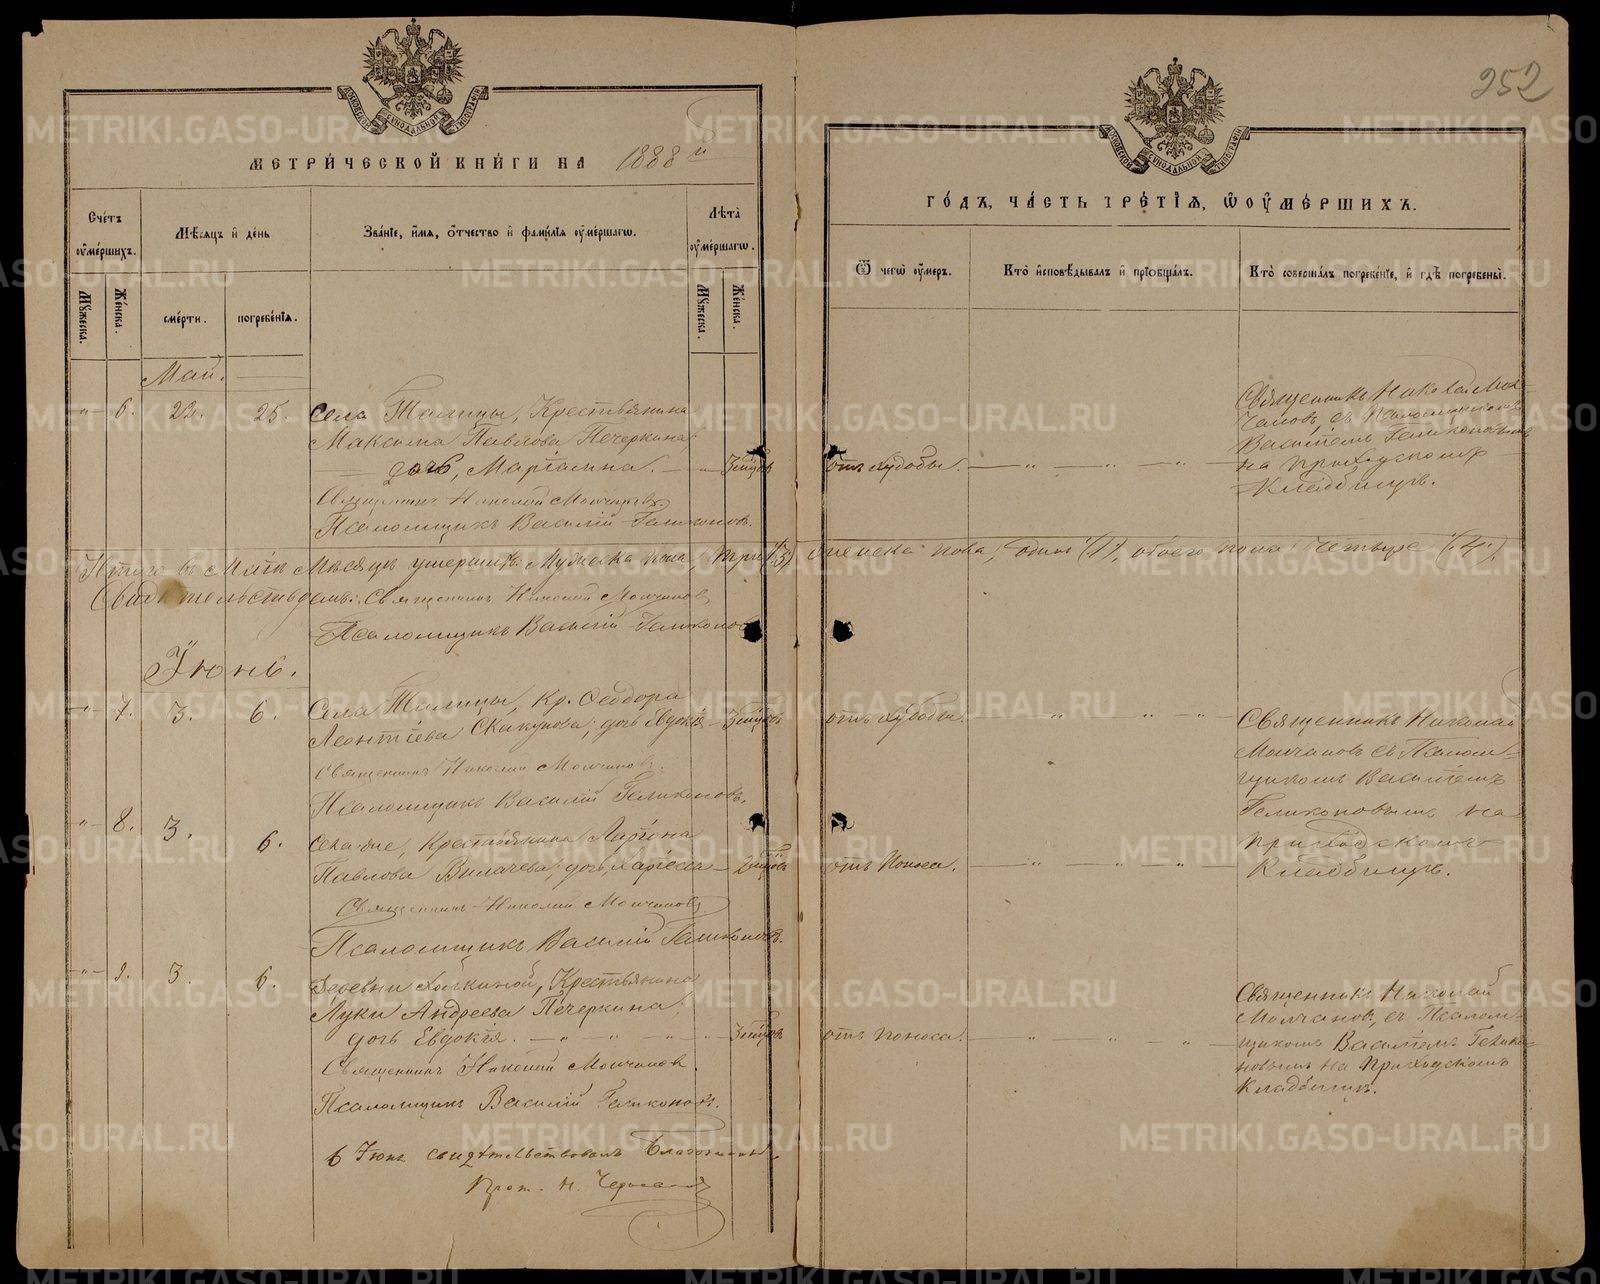 252
МЕТРИ́ЧЕСКОЙ КНИ́ГИ НА 1888 й
ГО́ДЪ, ЧА́СТЬ ТРЕ́ТІѦ, Ѿ ОУМЕ́РШИХЪ.
Сче́тъ оуме́ршихъ.
Мꙋ́жеска.
Же́нска.
Мѣ́сѧцъ и де́нь
сме́рти.
погребе́нїѧ.
Зва́нїе, и́мѧ, о́тчество и фами́лїѧ оуме́ршагѡ.
Лѣ́та оуме́ршагѡ.
Мꙋ́жеска.
Же́нска.
Ѿ чегѡ̀ оу́меръ.
Кто̀ исповѣ́дывалъ и прїобща́лъ.
Кто̀ соверша́лъ погребе́нїе, и гдѣ̀ погребены̀.
Май.
" 6. 22. 25.
Села Талицы, Крестьянина
Максима Павлова Печеркина,
дочь, Маріамна.
отъ худобы.
Священникъ Николай Молчановъ.
Псаломщикъ Василій Геликоновъ.
Священникъ Николай Мол-
чановъ съ Псаломщикомъ
Василіемъ Геликоновымъ
на приходскомъ
кладбищѣ.
Итого въ Маѣ Мѣсяцѣ умершихъ Мужеска пола, три (3), женска пола, одинъ (1), обоего пола четыре (4).
Свидѣтельствуемъ: Священникъ Николай Молчановъ
Псаломщикъ Василій Геликоновъ
Іюнь.
" 7. 3. 6.
Села Талицы, Кр. Ѳеодора
Леонтіева Скакунова, дочь
отъ худобы.
Священникъ Николай Молчановъ.
Псаломщикъ Василій Геликоновъ.
Священникъ Николай
Молчановъ съ Псалом-
щикомъ Василіемъ
Геликоновымъ на
приходскомъ
кладбищѣ.
" 8. 3. 6.
Крестьянина
Павлова дочь
отъ поноса.
Священникъ Николай Молчановъ
Псаломщикъ Василій Геликоновъ.
" 9. 3. 6.
Деревни Крестьянина
Луки Андреева Печеркина,
дочь Евдокія.
отъ поноса.
Священникъ Николай Молчановъ.
Псаломщикъ Василій Геликоновъ.
Священникъ Николай
Молчановъ, съ Псалом-
щикомъ Василіемъ Гелико-
новымъ на приходскомъ
кладбищѣ.
6 Іюня свидѣтельствовалъ Благочинный
Прот. Н.
METRIKI.GASO-URAL.RU